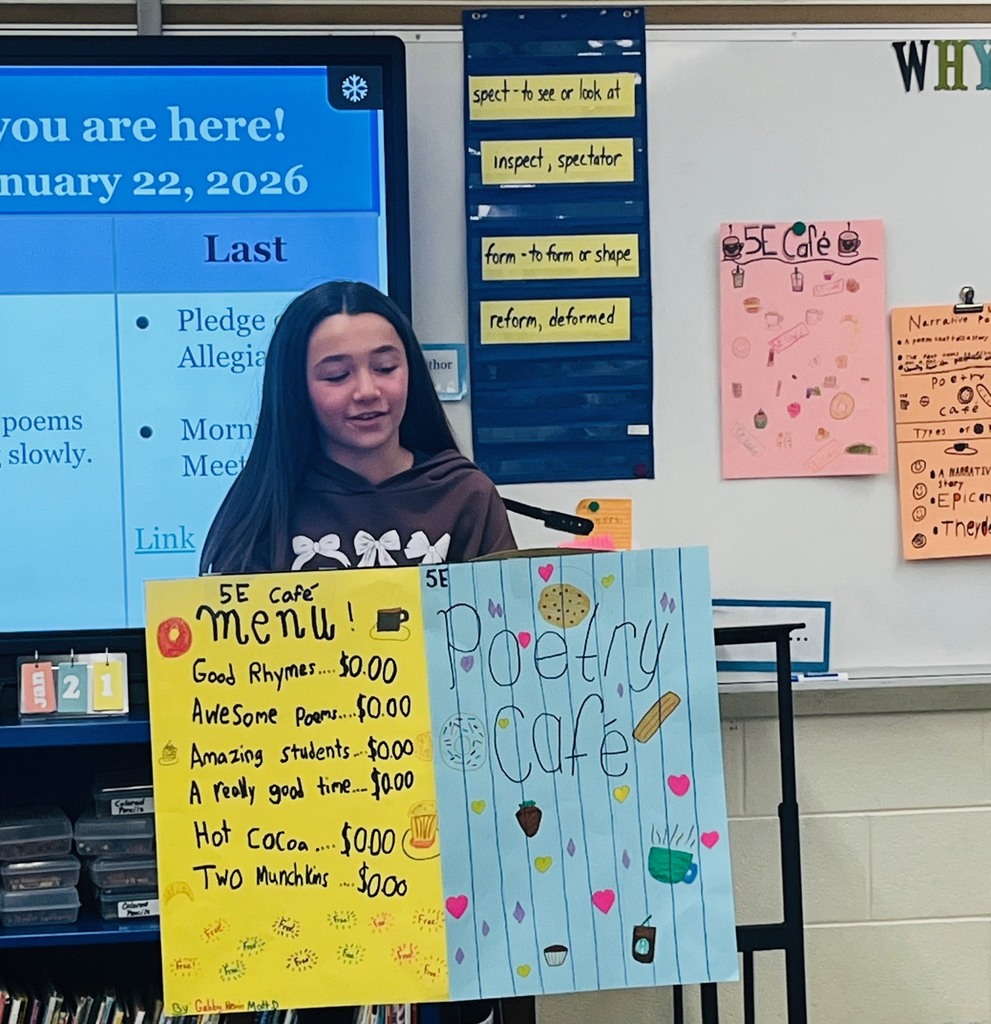 you are here!
nuary 22, 2026
Last
Pledge
Allegia
poems
slowly.
Morn
Meet
Link
thor
spect - to see or look at
inspect, spectator
form - to form or shape
reform, deformed
WHY
5E Café
Narrative Po
A poem that tells a story
Poetry
café
Types of
A NARRATIVE
story
EPIC an
They do
Jan
2 1
Colored
Pencils
Colored
Pencils
5E Café
menu!
Good Rhymes.... $0.00
Awesome Poems.... $0.00
Amazing students... $0.00
A really good time.... $0.00
Hot Cocoa .... $0.00
Two Munchkins .... $0.00
Free! Free! Free! Free! Free!
Free! Free! Free!
Free! Free! Free! Free!
By Gabby Henin Matt D
5E
Poetry
Café